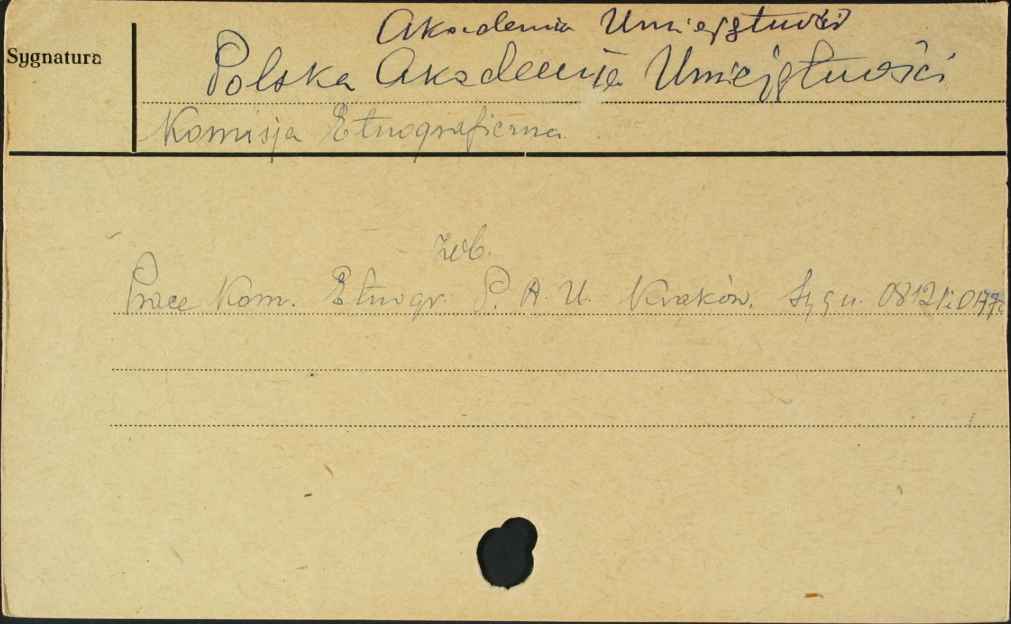 Akademia Umiejętności
Sygnatura
Polska Akademija Umiejętności
Komisja Etnograficzna
zob.
Prace Kom. Etnogr. P. A. U. Kraków. Sygn.